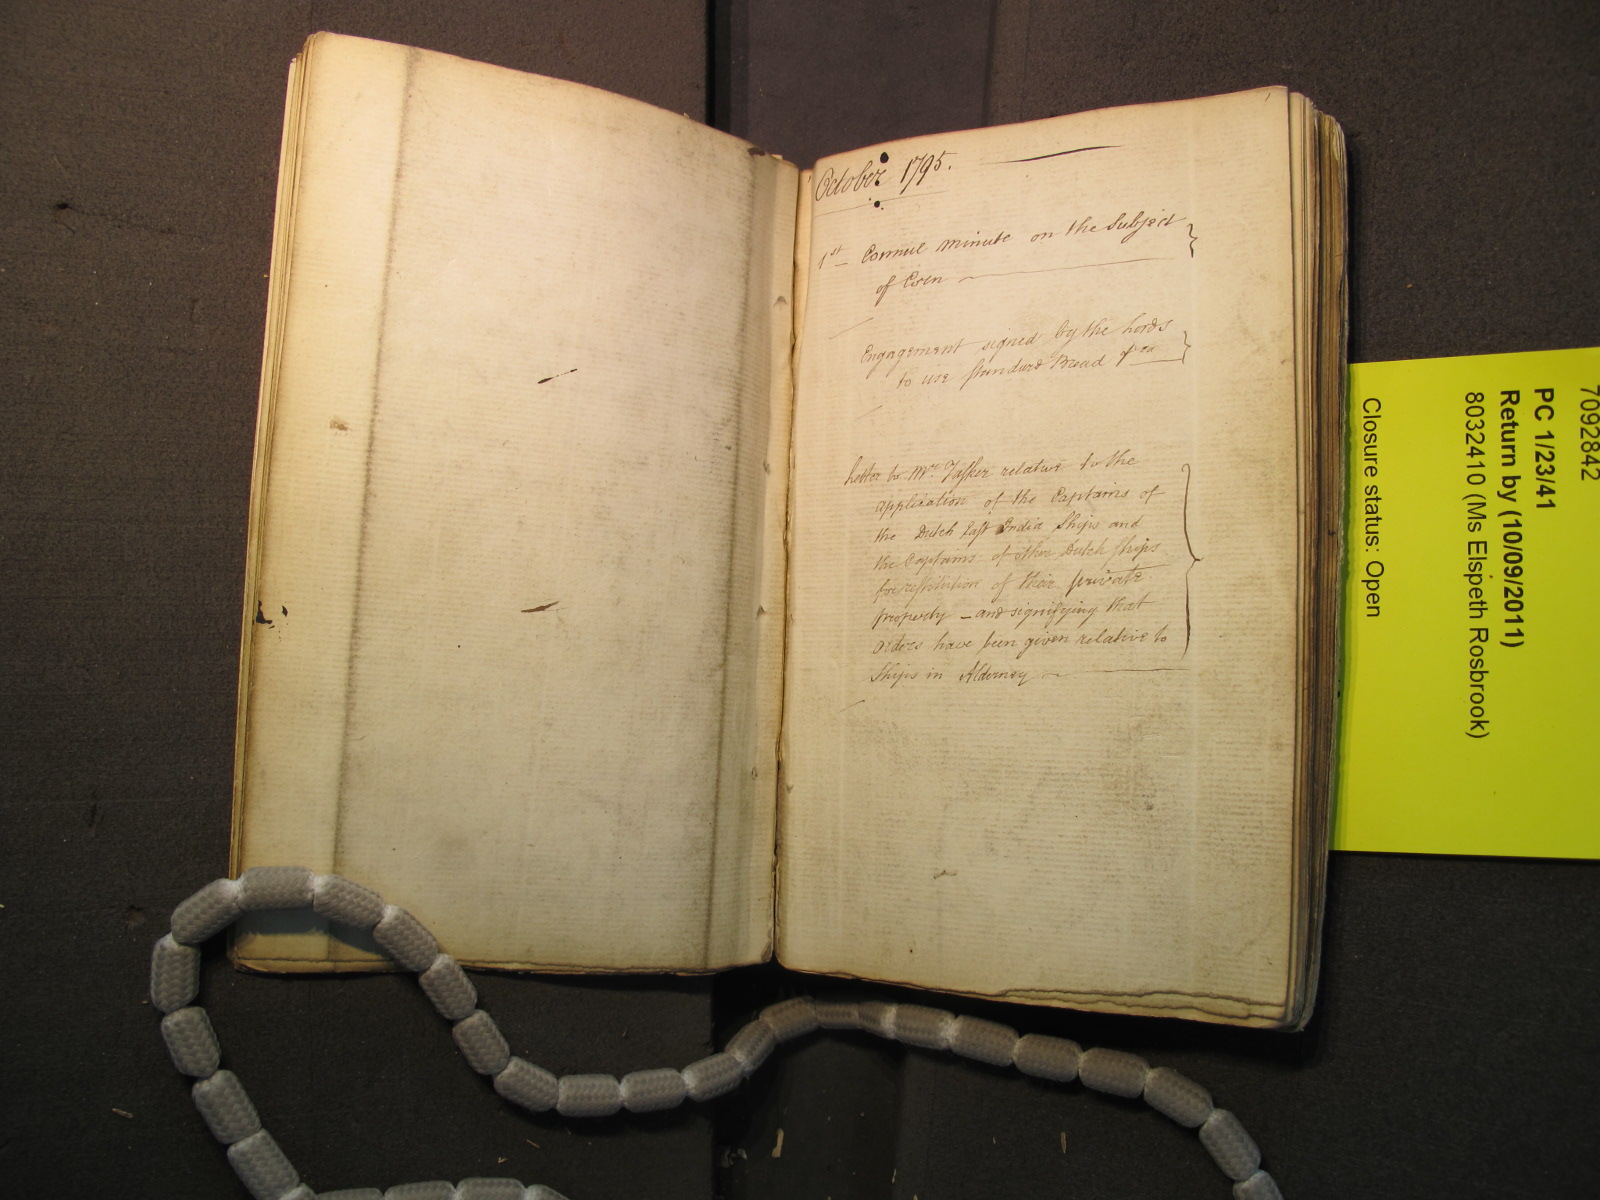 October 1795.
1st Connul minute on the Subject
of Corn
Engagement signed by the Lords
to use standard Bread
Letter to Mr. Tasker relative to the
Application of the Captains of
the Dutch East India Ships and
the Captains of other Dutch Ships
for restitution of their private
property - and signifying that
orders have been given relative to
Ships in Alderney
7092842
PC 1/23/41
Return by (10/09/2011)
8032410 (Ms Elspeth Rosbrook)
Closure status: Open